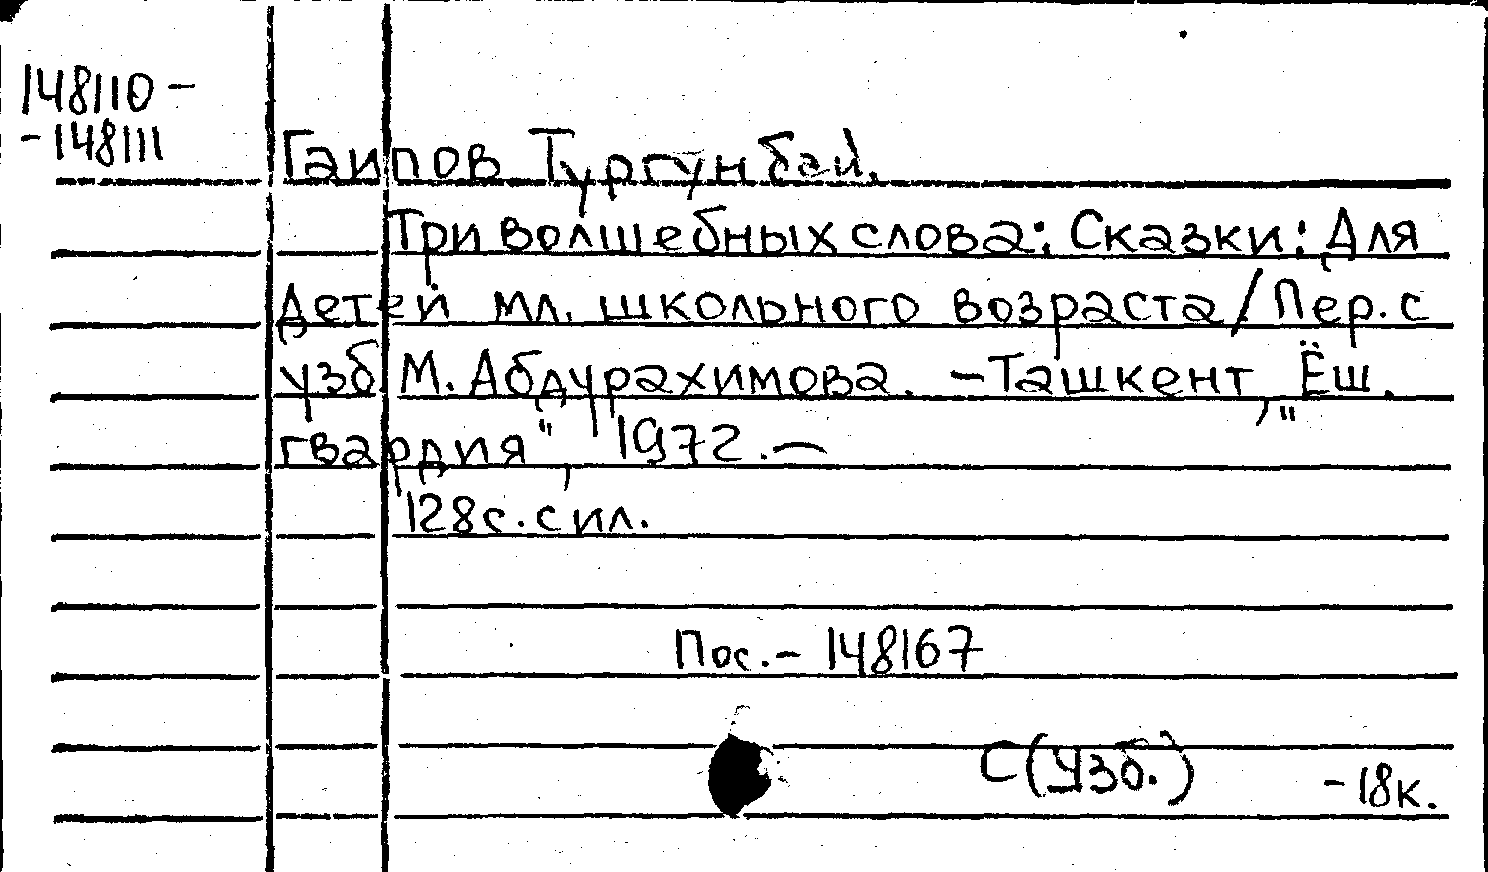 148110 –
– 148111
Гаипов Тургунбай.
Три волшебных слова: Сказки: Для
детей мл. школьного возраста / Пер. с
узб. М. Абдурахимова. – Ташкент, „Ёш.
гвардия", 1972. –
128 с. с ил.
Пос. – 148167
С(Узб.)
– 18к.